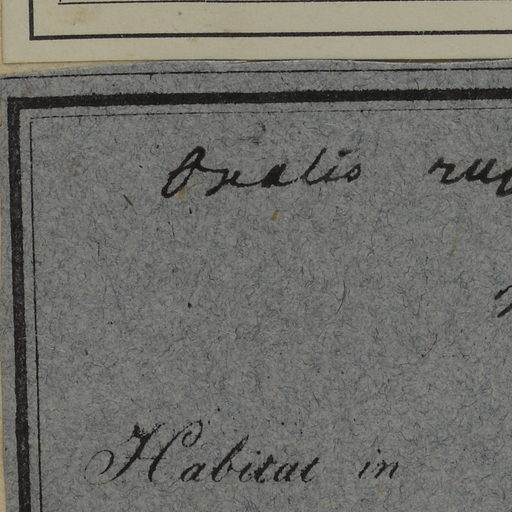 Oxalis
Habitat in